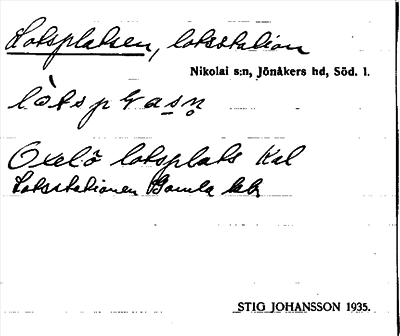 Lotsplatsen, lotsstation
Nikolai s:n, Jönåkers hd, Söd. l.
Oxelö lotsplats Kal
Lotsstationen Gamla
STIG JOHANSSON 1935.